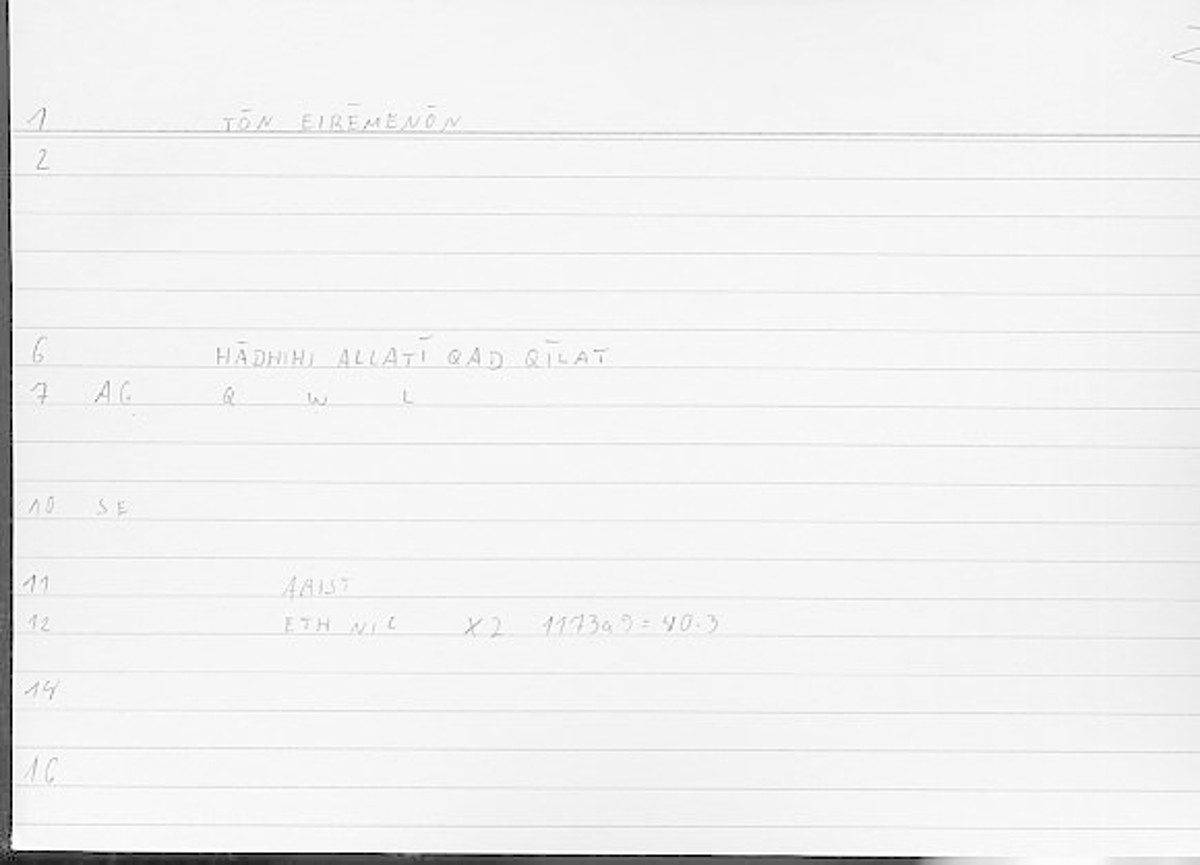 1 TŌN EIRĒMENŌN
2
6 HĀDHIHI ALLATĪ QAD QĪLAT
7 AG Q W L
10 SE
11 ARIST
12 ETH NIC X2 1173a9 = 40.3
14
16